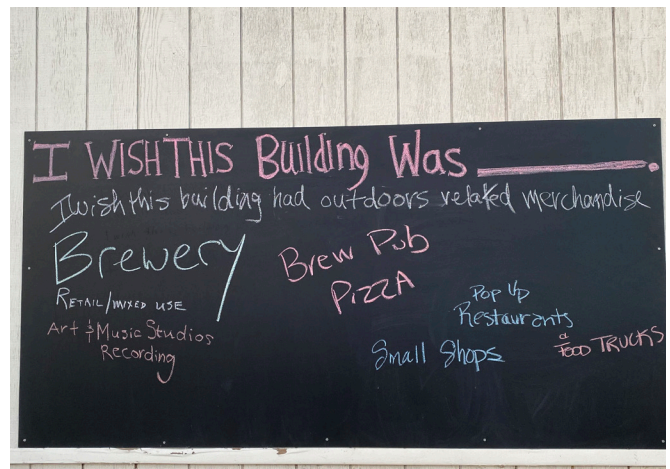 I WISH THIS Building Was ________.
I wish this building had outdoors related merchandise
Brewery
RETAIL/MIXED USE
Art & Music Studios
Recording
Brew Pub
PIZZA
Pop Up
Restaurants
Small Shops
FOOD TRUCKS